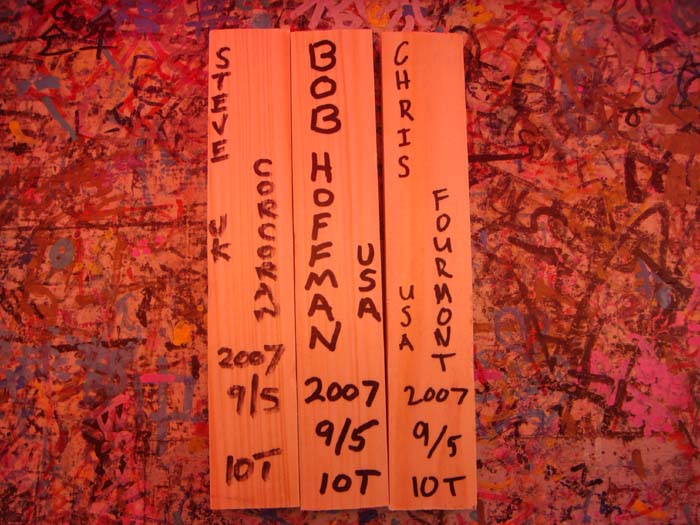 STEVE
CORCORAN
UK
2007
9/5
10T
BOB HOFFMAN
USA
2007
9/5
10T
CHRIS
FOURMONT
USA
2007
9/5
10T